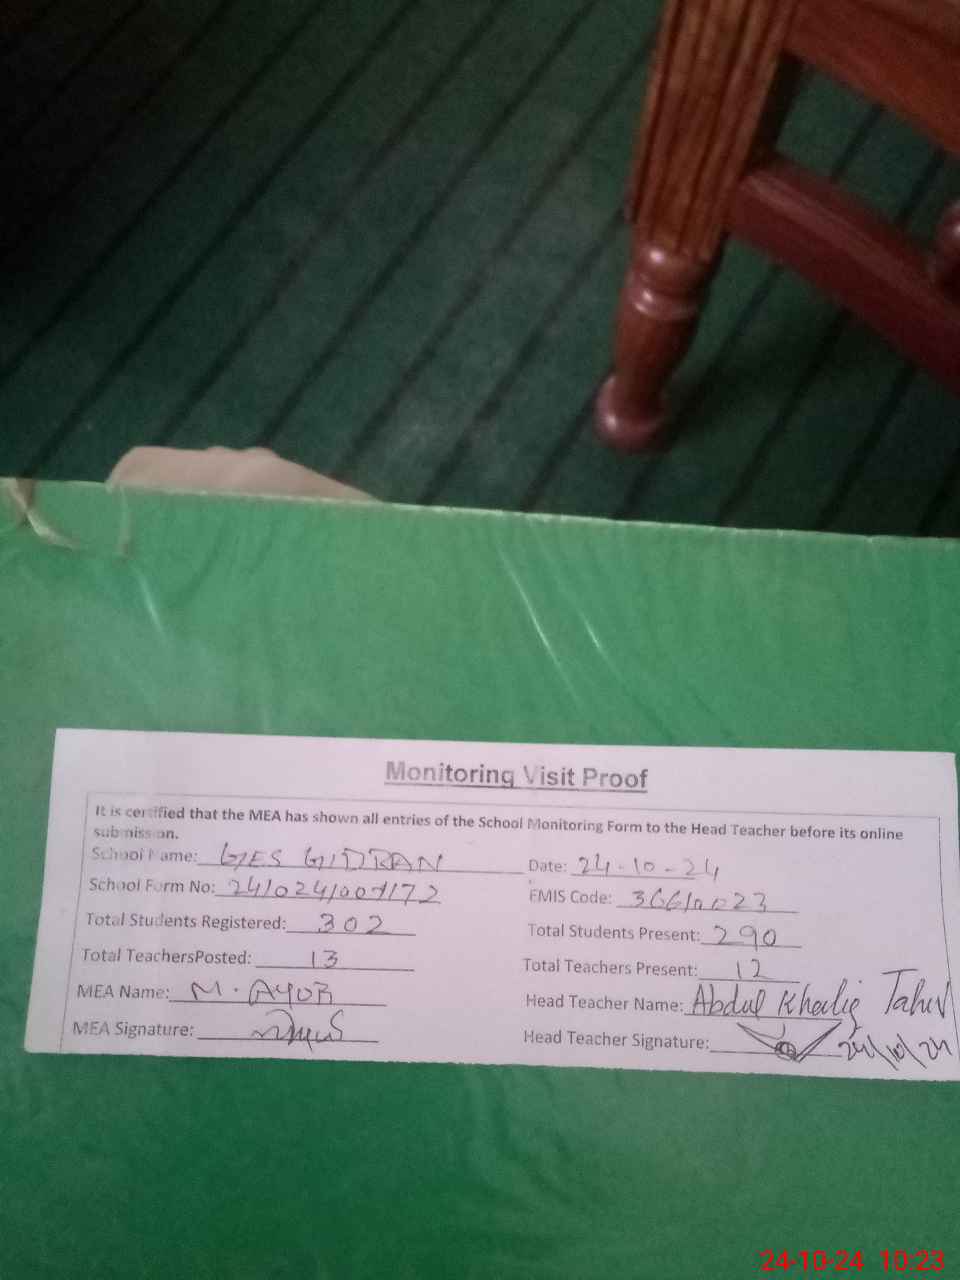 Monitoring Visit Proof
It is certified that the MEA has shown all entries of the School Monitoring Form to the Head Teacher before its online
submission.
School Name: GES GIDRAN Date: 24-10-24
School Form No: EMIS Code: 36610023
Total Students Registered: 302 Total Students Present: 290
Total TeachersPosted: 13 Total Teachers Present: 12
MEA Name: M. AYUB Head Teacher Name: Abdul Khaliq Tahir
MEA Signature: Head Teacher Signature: 24/10/24
24-10-24 10:23